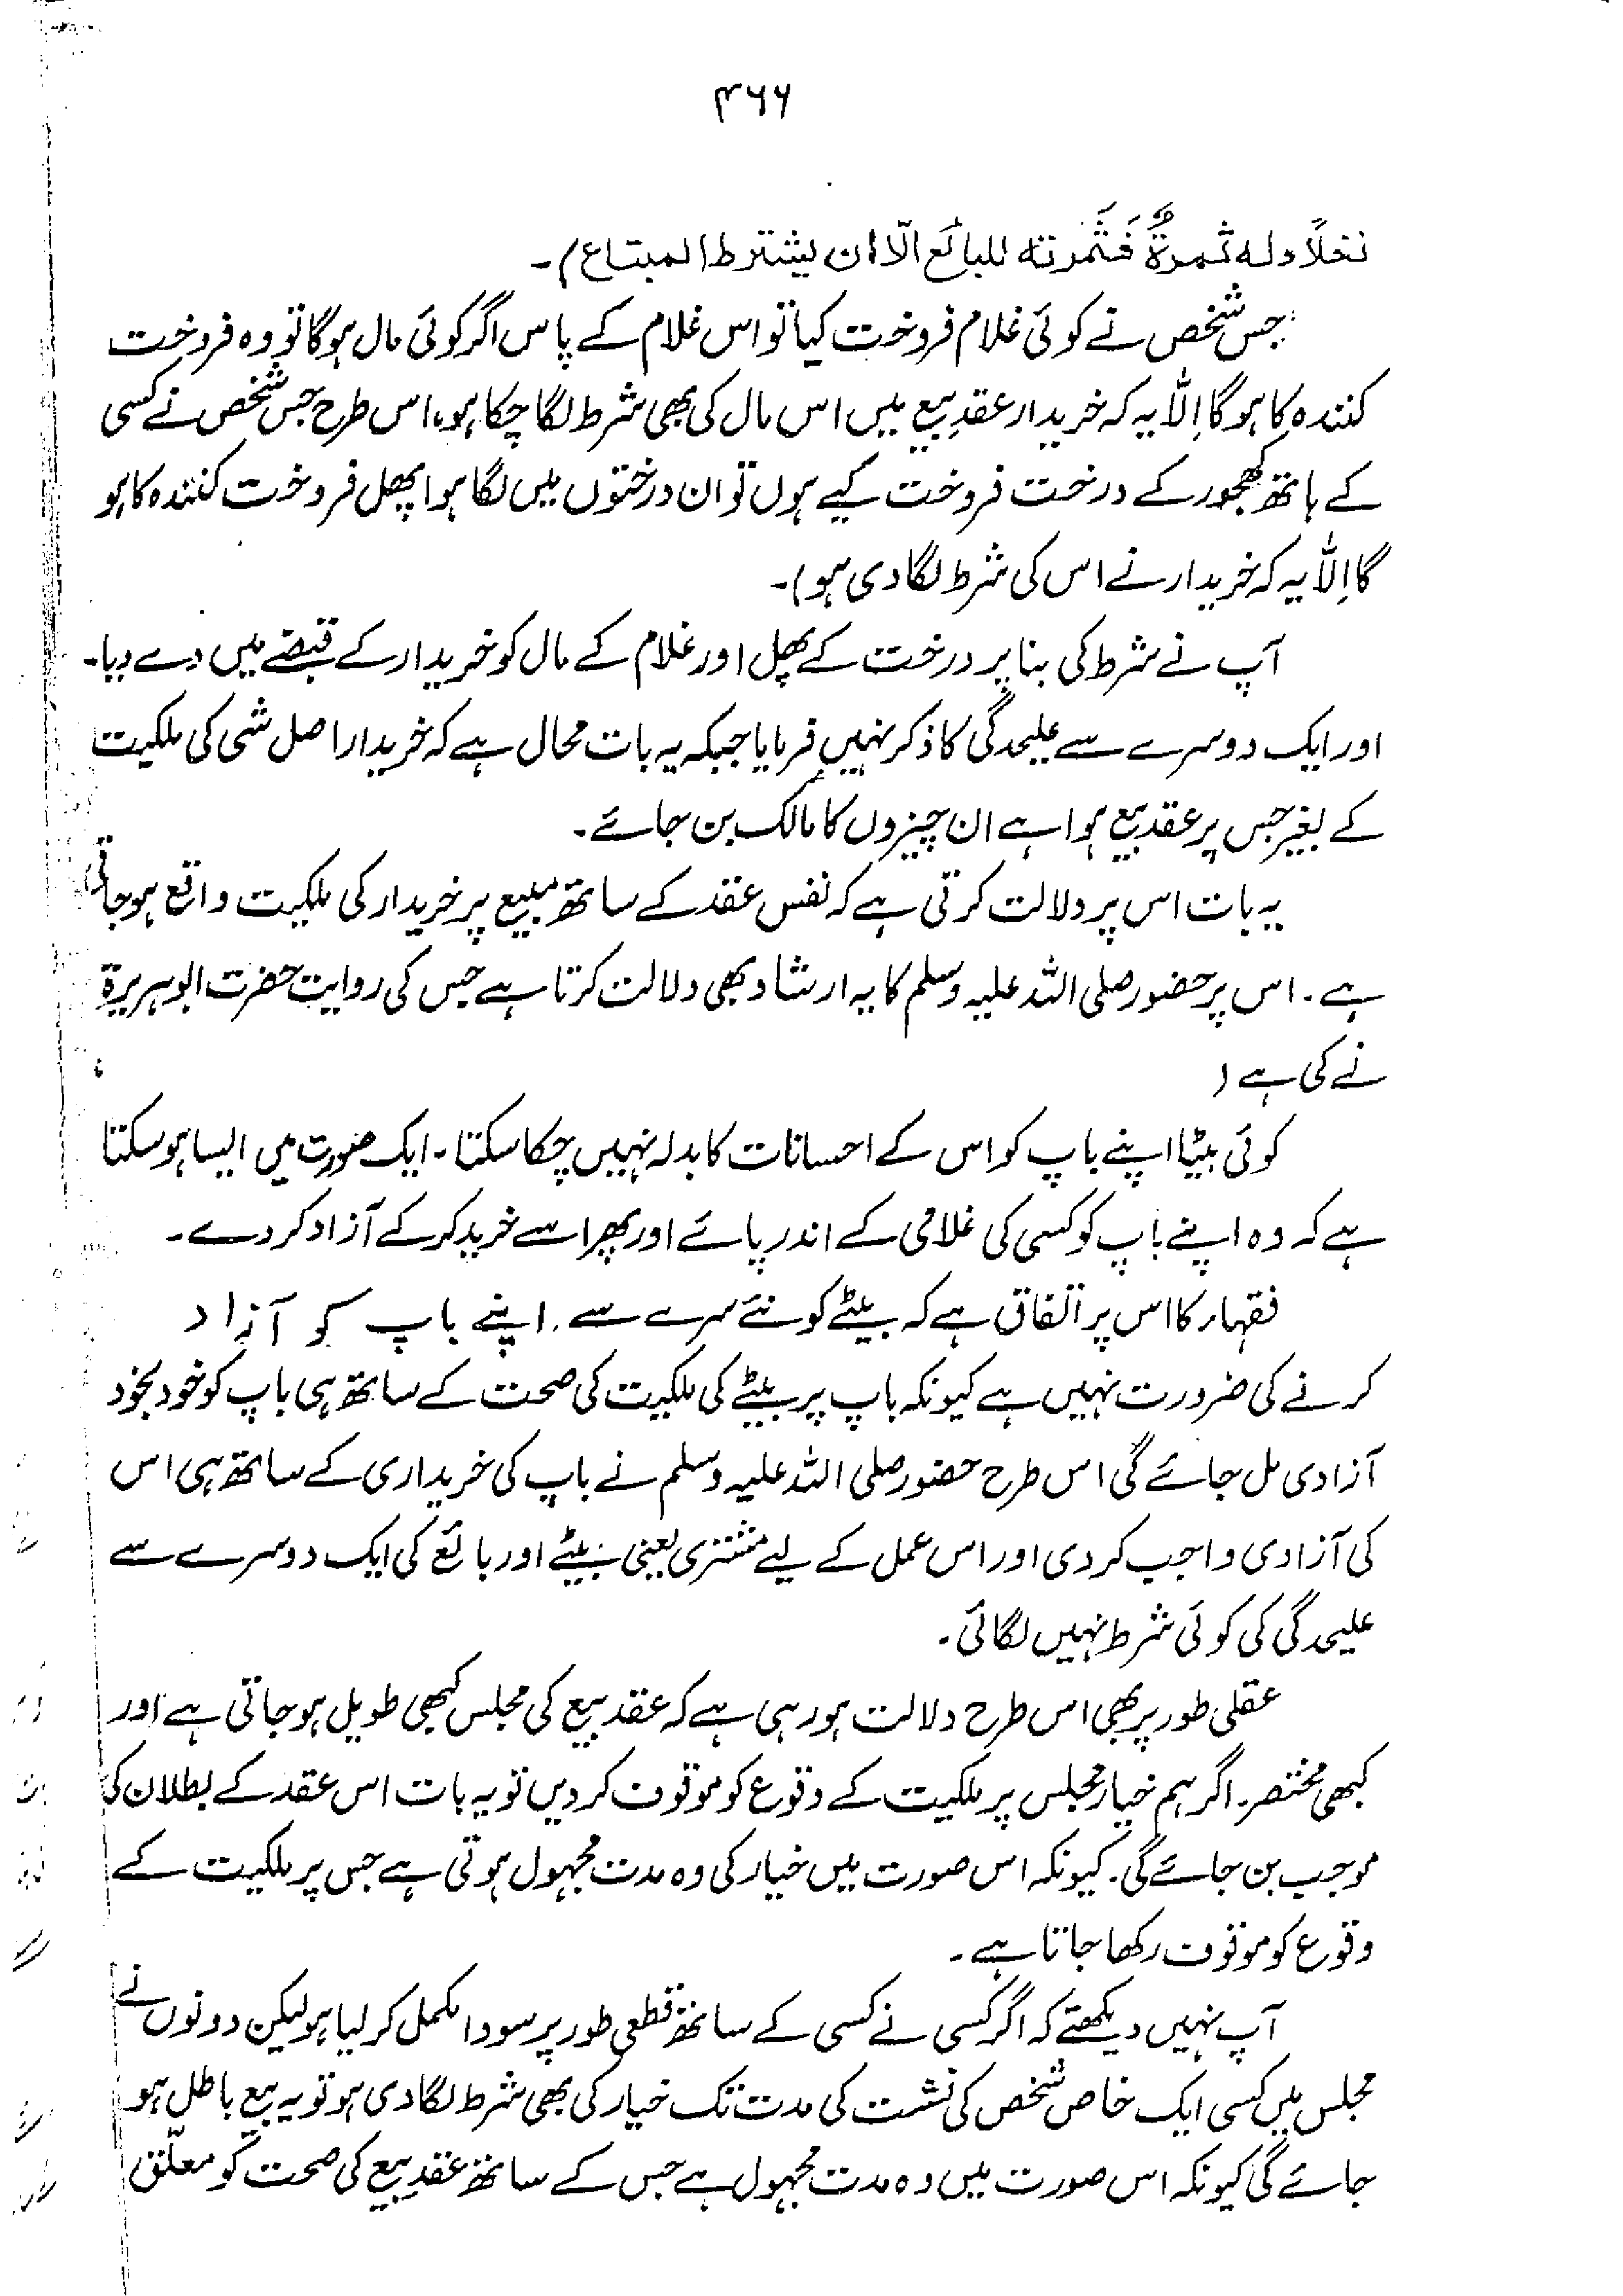 ۴۶۶
نخلاً وله ثمرةٌ فَثَمرته للبائع الّا ان يشترط المبتاع)۔
جس شخص نے کوئی غلام فروخت کیا تو اس غلام کے پاس اگر کوئی مال ہوگا تو وہ فروخت
کنندہ کا ہوگا اِلّا یہ کہ خریدار عقدِ بیع میں اس مال کی بھی شرط لگا چکا ہو، اس طرح جس شخص نے کسی
کے ہاتھ کھجور کے درخت فروخت کیے ہوں تو ان درختوں میں لگا ہوا پھل فروخت کنندہ کا ہو
گا اِلّا یہ کہ خریدار نے اس کی شرط لگا دی ہو)۔
آپ نے شرط کی بنا پر درخت کے پھل اور غلام کے مال کو خریدار کے قبضے میں دے دیا۔
اور ایک دوسرے سے علیحدگی کا ذکر نہیں فرمایا جبکہ یہ بات محال ہے کہ خریدار اصل شی کی ملکیت
کے بغیر جس پر عقد بیع ہوا ہے ان چیزوں کا مالک بن جائے۔
یہ بات اس پر دلالت کرتی ہے کہ نفس عقد کے ساتھ مبیع پر خریدار کی ملکیت واقع ہو جاتی
ہے۔ اس پر حضور صلی اللہ علیہ وسلم کا یہ ارشاد بھی دلالت کرتا ہے جس کی روایت حضرت ابوہریرۃ
نے کی ہے (
کوئی بیٹا اپنے باپ کو اس کے احسانات کا بدلہ نہیں چکا سکتا۔ ایک صورت میں ایسا ہو سکتا
ہے کہ وہ اپنے باپ کو کسی کی غلامی کے اندر پائے اور پھر اسے خرید کر کے آزاد کر دے۔
فقہاء کا اس پر اتفاق ہے کہ بیٹے کو نئے سرے سے اپنے باپ کو آزاد
کرنے کی ضرورت نہیں ہے کیونکہ باپ پر بیٹے کی ملکیت کی صحت کے ساتھ ہی باپ کو خود بخود
آزادی مل جائے گی اس طرح حضور صلی اللہ علیہ وسلم نے باپ کی خریداری کے ساتھ ہی اس
کی آزادی واجب کردی اور اس عمل کے لیے مشتری یعنی بیٹے اور بائع کی ایک دوسرے سے
علیحدگی کی کوئی شرط نہیں لگائی۔
عقلی طور پر بھی اس طرح دلالت ہو رہی ہے کہ عقد بیع کی مجلس کبھی طویل ہو جاتی ہے اور
کبھی مختصر۔ اگر ہم خیار مجلس پر ملکیت کے وقوع کو موقوف کر دیں تو یہ بات اس عقد کے بطلان کی
موجب بن جائے گی۔ کیونکہ اس صورت میں خیار کی وہ مدت مجہول ہوتی ہے جس پر ملکیت کے
وقوع کو موقوف رکھا جاتا ہے۔
آپ نہیں دیکھتے کہ اگر کسی نے کسی کے ساتھ قطعی طور پر سودا مکمل کر لیا ہو لیکن دونوں نے
مجلس میں کسی ایک خاص شخص کی نشست کی مدت تک خیار کی بھی شرط لگا دی ہو تو یہ بیع باطل ہو
جائے گی کیونکہ اس صورت میں وہ مدت مجہول ہے جس کے ساتھ عقدِ بیع کی صحت کو معلّق